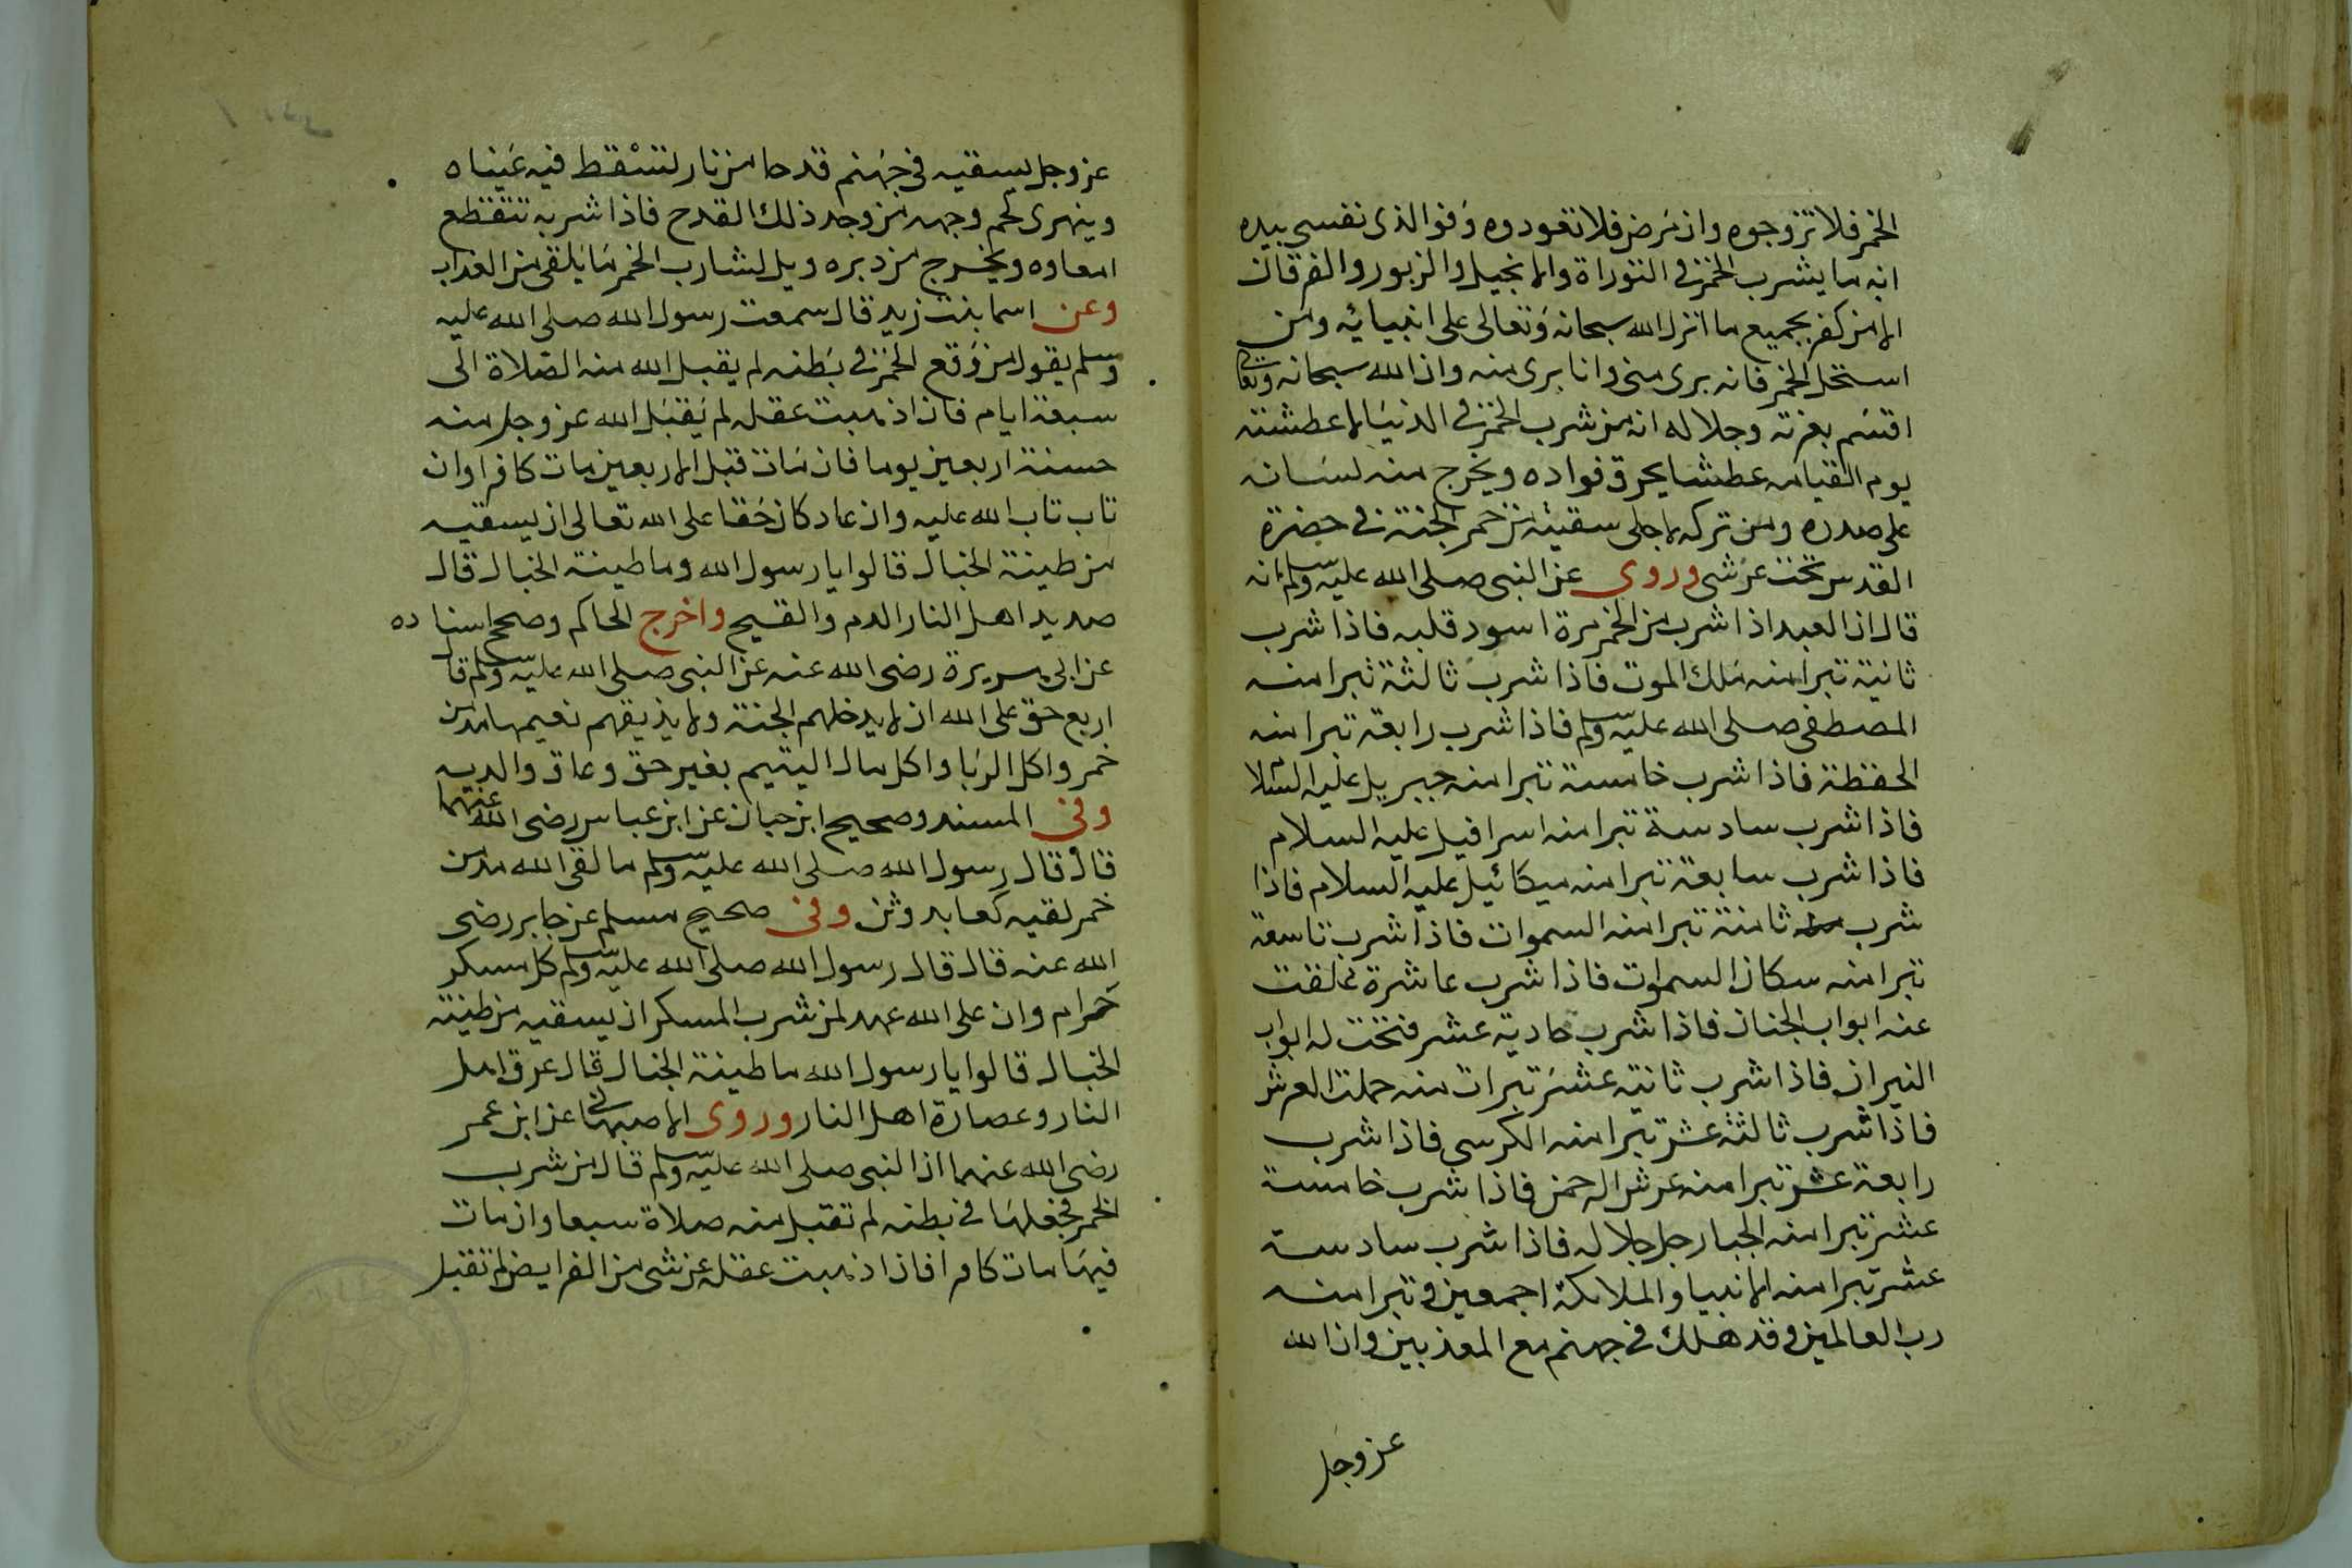 الخمر فلا تزوجوه وان مرض فلا تعودوه فوالذي نفسي بيده
انه ما يشرب الخمر في التوراة والانجيل والزبور والفرقان
الا من كفر بجميع ما انزل الله سبحانه وتعالى على انبيائه ومن
استحل الخمر فانه بري مني وانا بري منه وان الله سبحانه وتعالى
اقسم بعزته وجلاله انه من شرب الخمر في الدنيا لاعطشته
يوم القيامه عطشا يحرق فواده ويخرج منه لسانه
على صدره ومن تركه لاجلي سقيته من خمر الجنة في حضرة
القدس تحت عرشي وروى عن النبي صلى الله عليه وسلم انه
قال ان العبد اذا شرب من الخمر مرة اسود قلبه فاذا شرب
ثانية تبرا منه ملك الموت فاذا شرب ثالثة تبرا منه
المصطفى صلى الله عليه وسلم فاذا شرب رابعة تبرا منه
الحفظة فاذا شرب خامسة تبرا منه جبريل عليه السلام
فاذا شرب سادسة تبرا منه اسرافيل عليه السلام
فاذا شرب سابعة تبرا منه ميكائيل عليه السلام فاذا
شرب ثامنة تبرا منه السموات فاذا شرب تاسعة
تبرا منه سكان السموات فاذا شرب عاشرة غلقت
عنه ابواب الجنان فاذا شرب حادية عشر فتحت له ابواب
النيران فاذا شرب ثانية عشر تبرات منه حملت العرش
فاذا شرب ثالثة عشر تبرا منه الكرسي فاذا شرب
رابعة عشر تبرا منه عرش الرحمن فاذا شرب خامسة
عشر تبرا منه الجبار جل جلاله فاذا شرب سادسة
عشر تبرا منه الانبيا والملائكة اجمعين وتبرا منه
رب العالمين وقد هلك في جهنم مع المعذبين وان الله
عز وجل
عز وجل يسقيه في جهنم قدحا من نار لتسقط فيه عيناه
وينهري لحم وجهه من وجد ذلك القدح فاذا شربه تتقطع
امعاوه ويخرج من دبره ويل لشارب الخمر ما يلقى من العذاب
وعن اسما بنت زيد قال سمعت رسول الله صلى الله عليه
وسلم يقول من وقع الخمر في بطنه لم يقبل الله منه الصلاة الى
سبعة ايام فان اذهبت عقله لم يقبل الله عز وجل منه
حسنة اربعين يوما فان مات قبل الاربعين مات كافرا وان
تاب تاب الله عليه وان عاد كان حقا على الله تعالى ان يسقيه
من طينة الخبال قالوا يا رسول الله وما طينة الخبال قال
صديد اهل النار الدم والقيح واخرج الحاكم وصحح اسناده
عن ابي هريرة رضى الله عنه عن النبي صلى الله عليه وسلم قال
اربع حق على الله ان لا يدخلهم الجنة ولا يذيقهم نعيمها مدمن
خمر واكل الربا واكل مال اليتيم بغير حق وعاق والديه
وفي المسند وصحيح ابن حبان عن ابن عباس رضى الله عنهما
قال قال رسول الله صلى الله عليه وسلم ما لقى الله مدمن
خمر لقيه كعابد وثن وفي صحيح مسلم عن جابر رضى
الله عنه قال قال رسول الله صلى الله عليه وسلم كل مسكر
حرام وان على الله عهد لمن شرب المسكر ان يسقيه من طينة
الخبال قالوا يا رسول الله ما طينة الخبال قال عرق اهل
النار وعصارة اهل النار وروى الاصبهاني عن ابن عمر
رضى الله عنهما ان النبي صلى الله عليه وسلم قال من شرب
الخمر فجعلها في بطنه لم تقبل منه صلاة سبعا وان مات
فيها مات كافرا فان اذهبت عقله عن شي من الفرايض لم تقبل